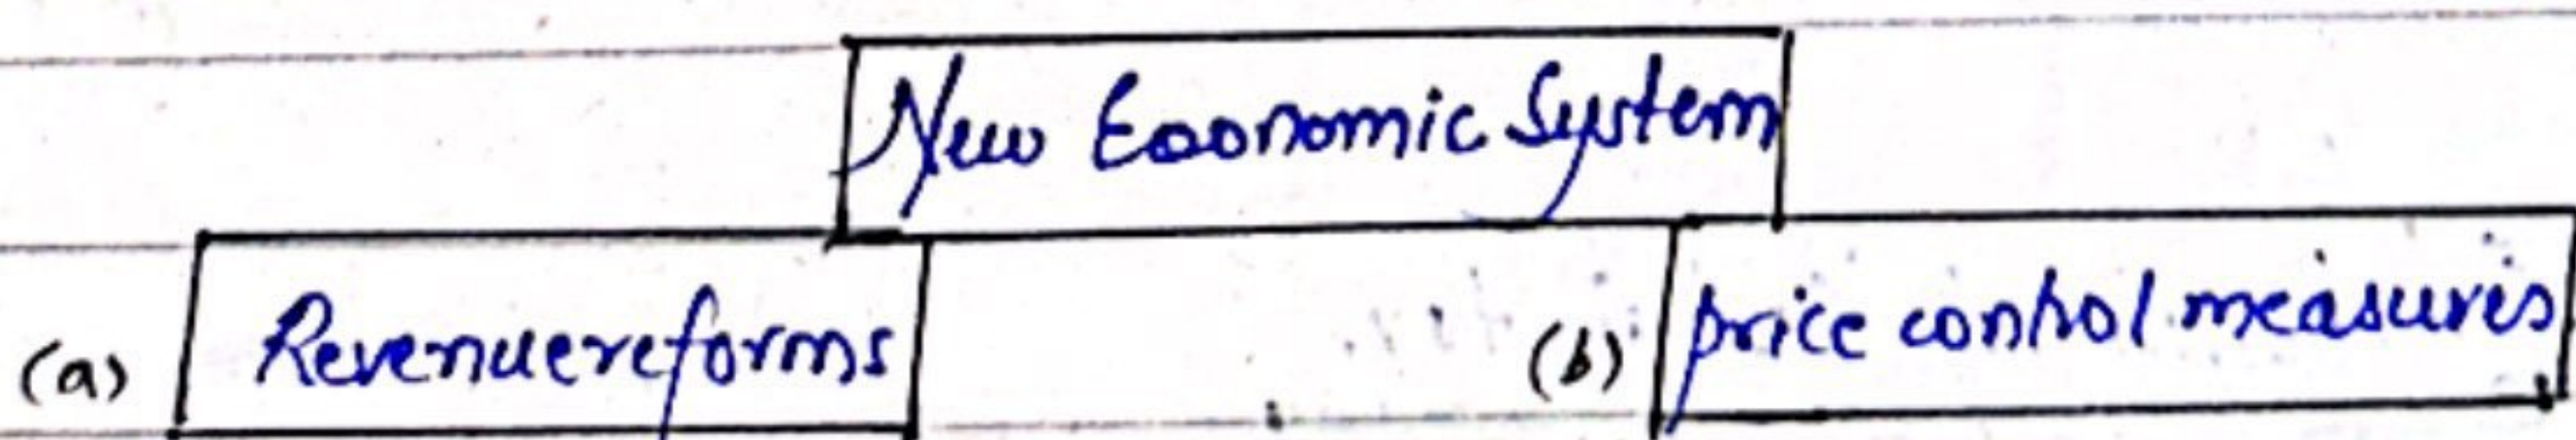 New Economic System
(a) Revenue reforms (b) price control measures